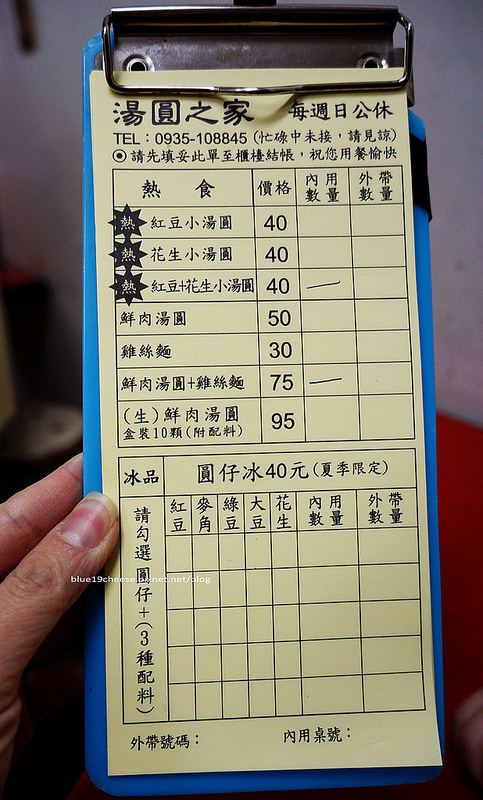 湯圓之家 每週日公休
TEL：0935-108845 (忙碌中未接，請見諒)
◉請先填妥此單至櫃檯結帳，祝您用餐愉快
熱食 價格 內用數量 外帶數量
熱 紅豆小湯圓 40
熱 花生小湯圓 40
熱 紅豆+花生小湯圓 40 一
鮮肉湯圓 50
雞絲麵 30
鮮肉湯圓+雞絲麵 75 一
(生)鮮肉湯圓 95
盒裝10顆(附配料)
冰品 圓仔冰40元(夏季限定)
請勾選圓仔+(3種配料) 紅豆 麥角 綠豆 大豆 花生 內用數量 外帶數量
blue19cheese.pixnet.net/blog
外帶號碼： 內用桌號：